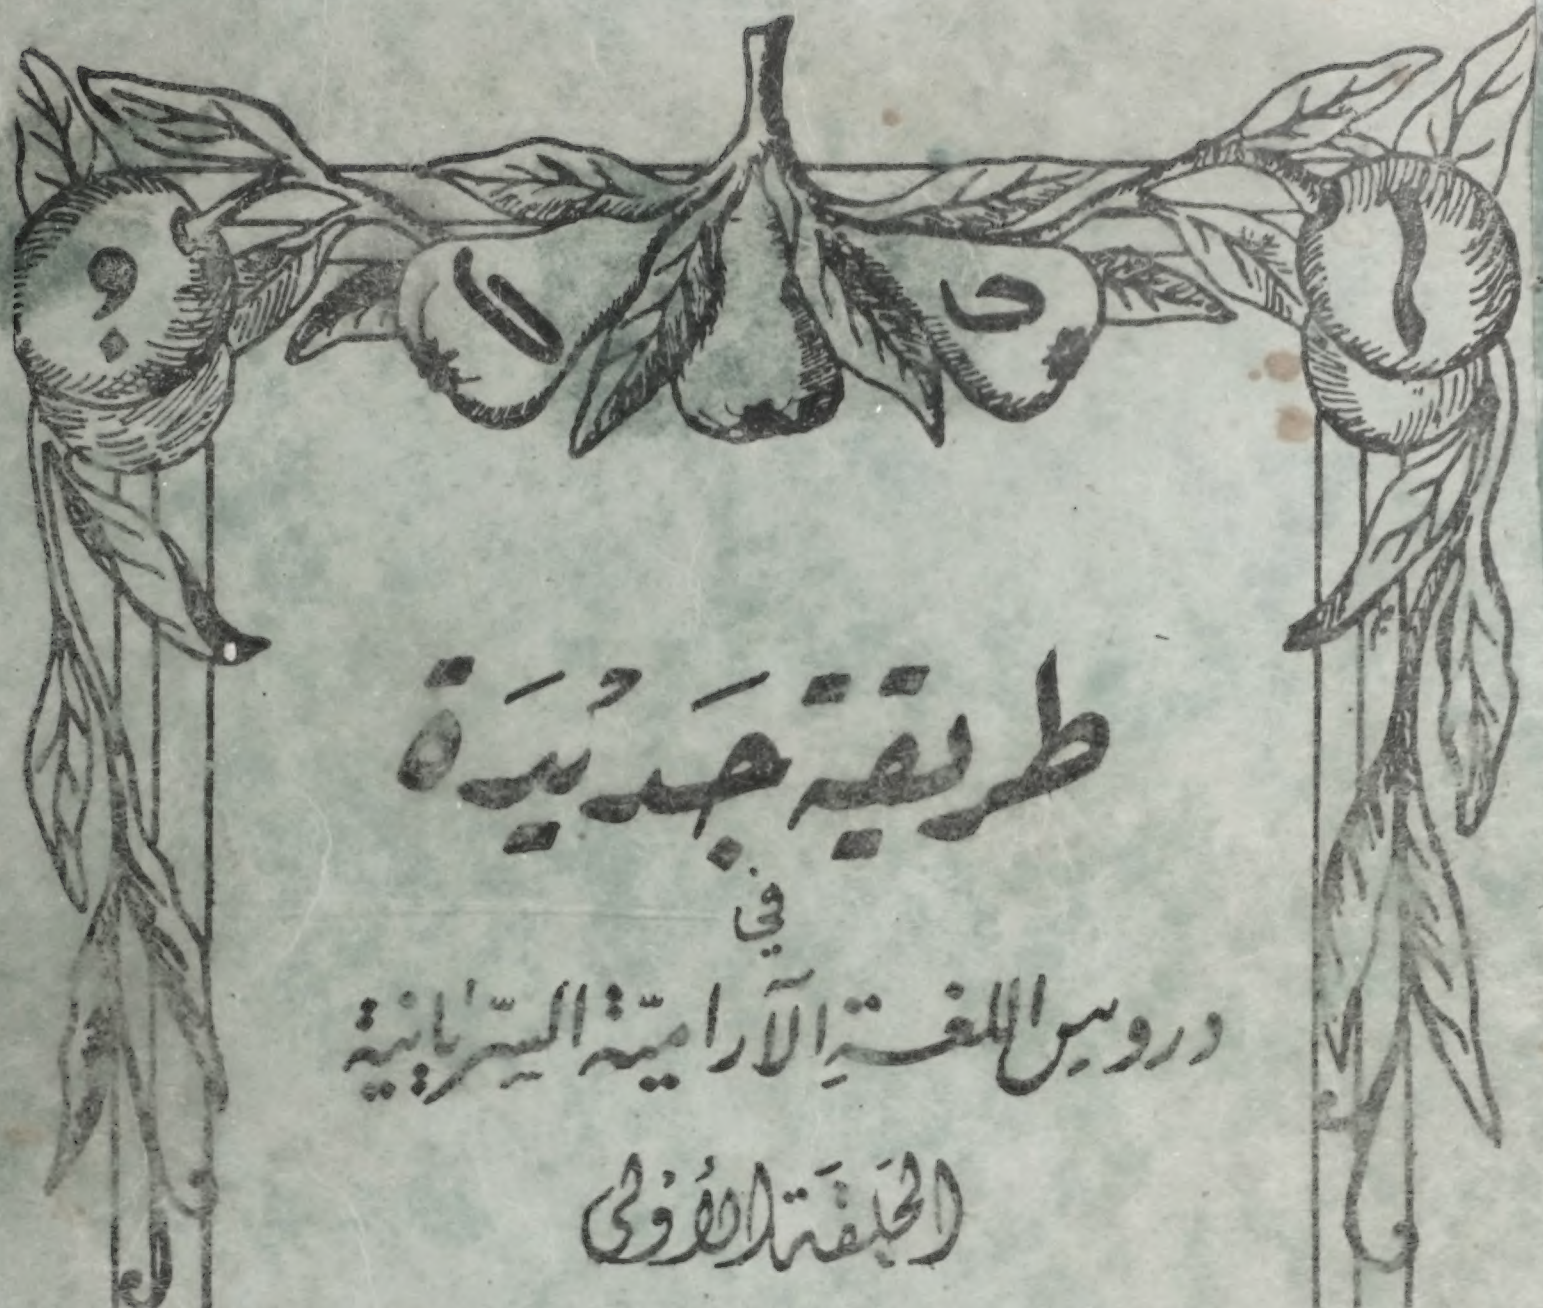 ܐ ܒ ܓ ܕ
طريقة جَديُدَة
في
دروس اللغةِ الآراميّة السّريانية
الحَلقَة الأُولى